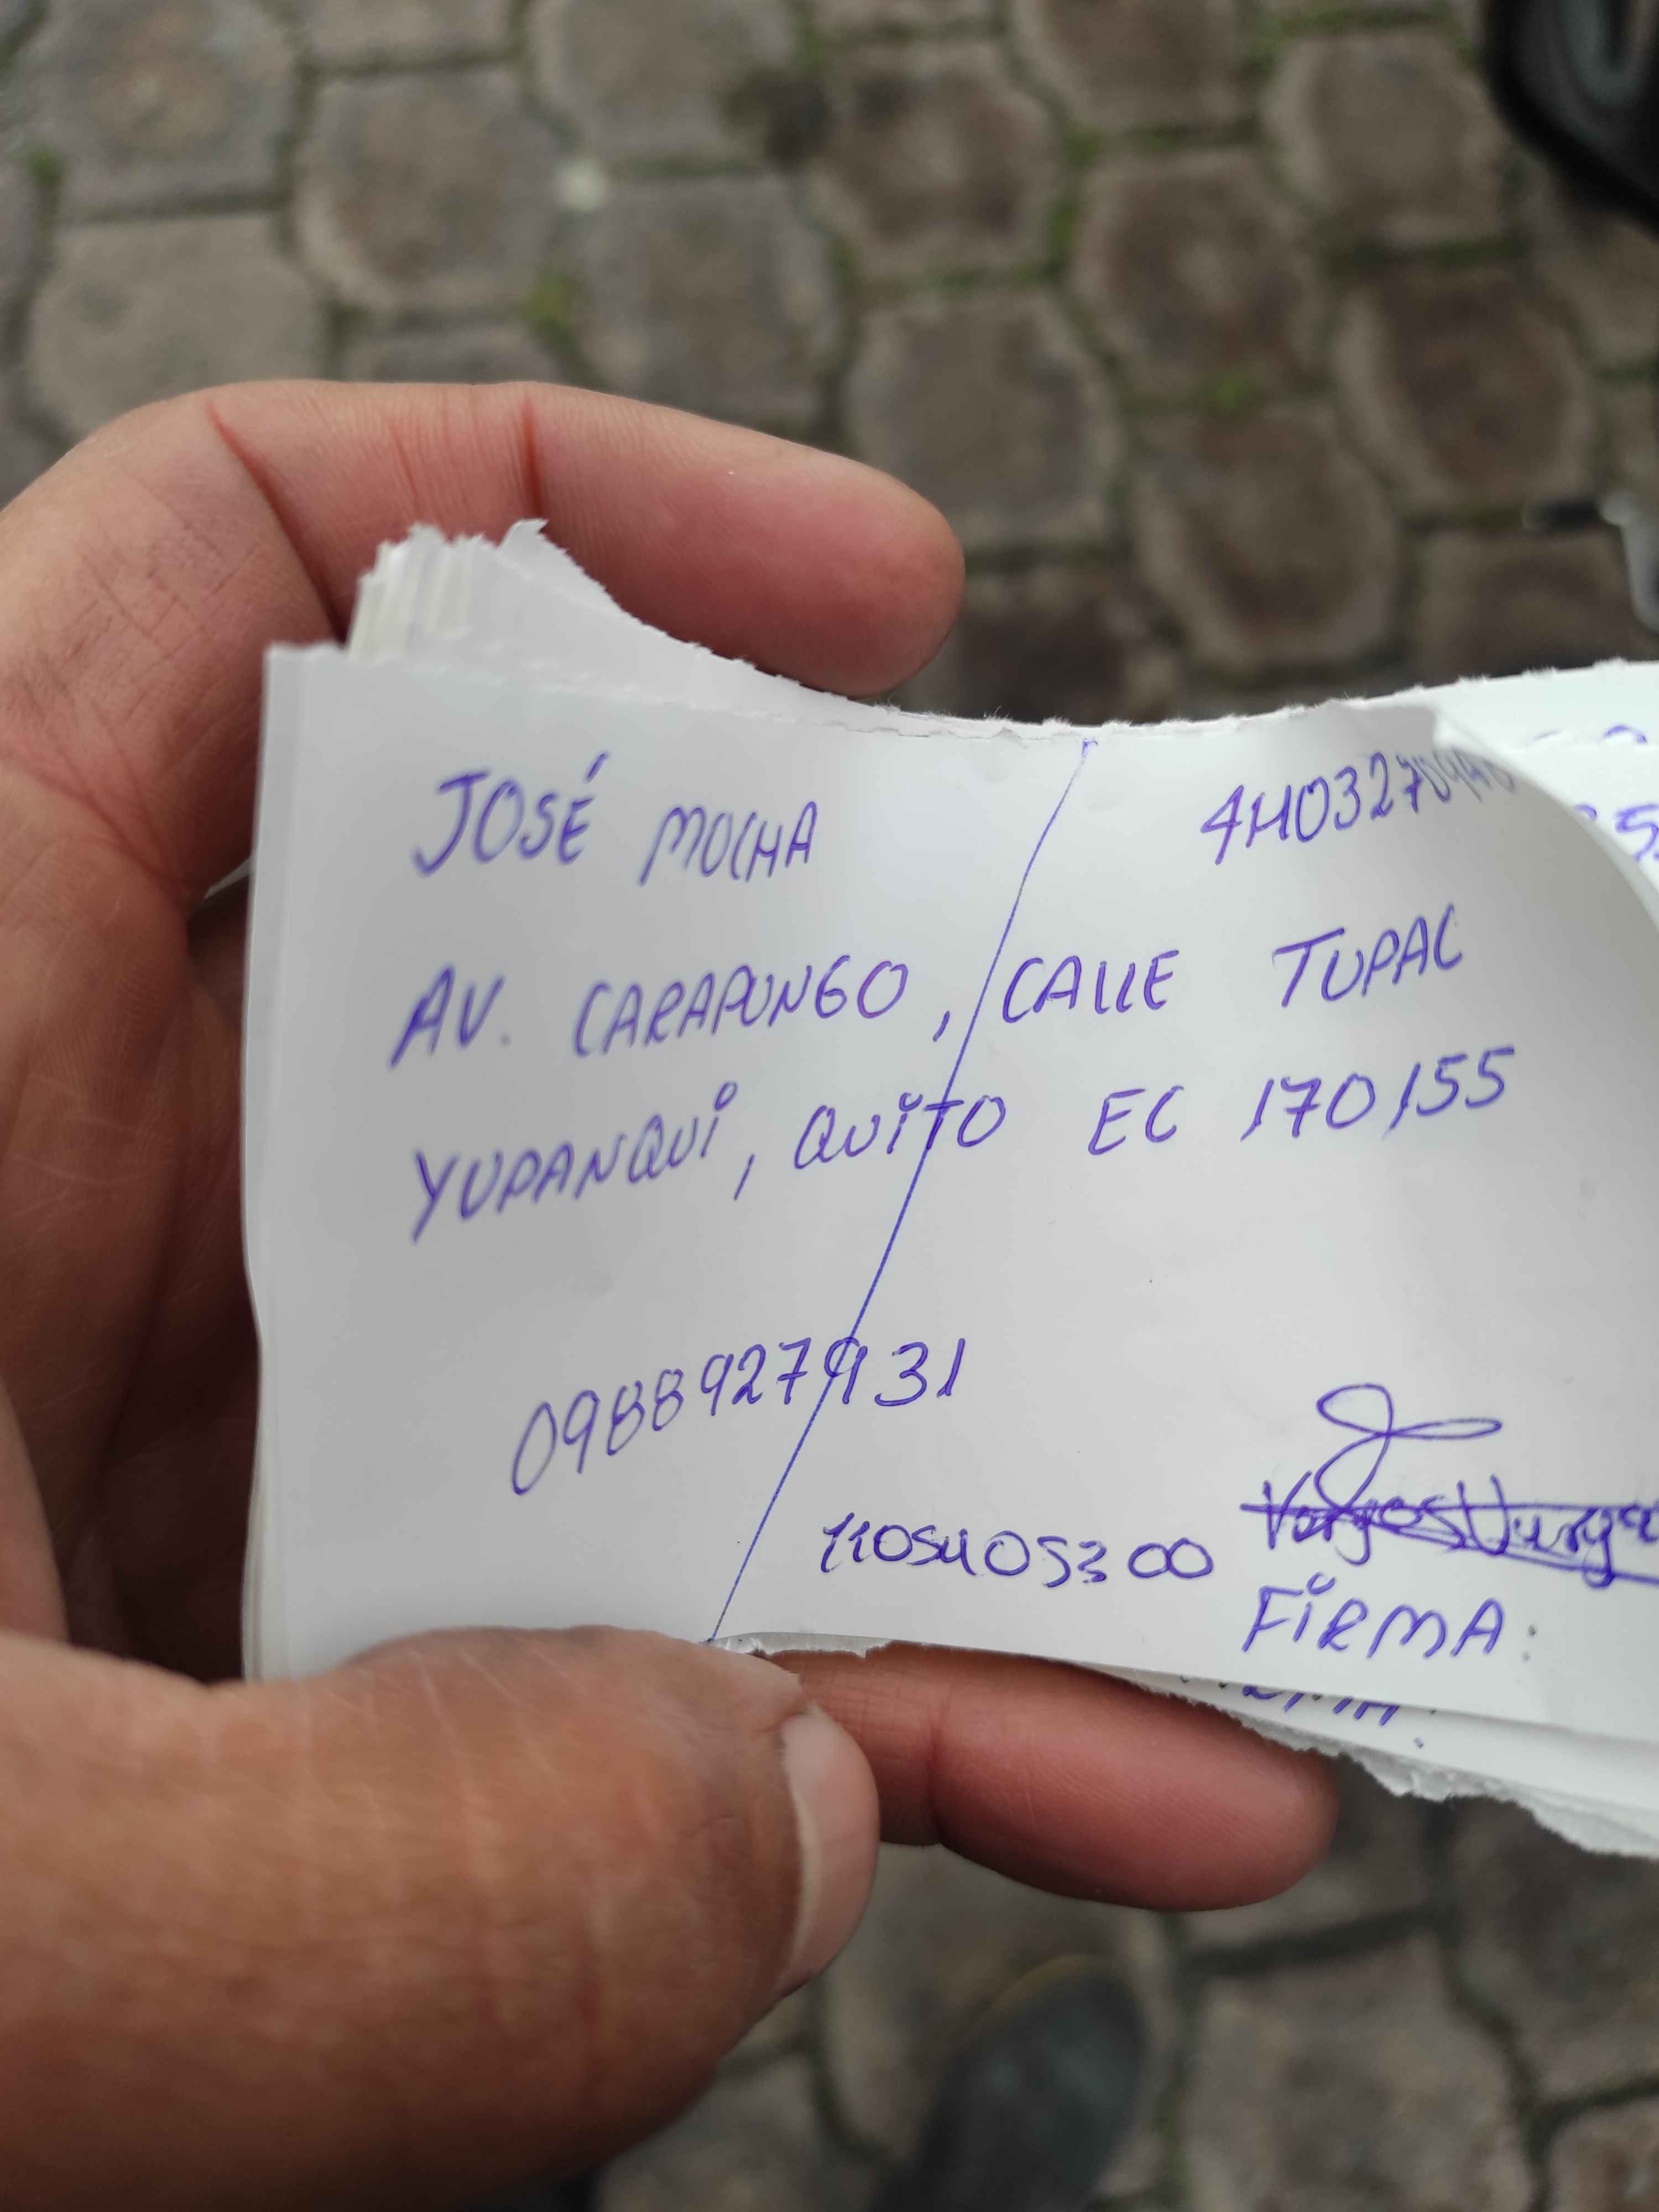 JOSÉ MOCHA
AV. CARAPUNGO, CALLE TUPAC
YUPANQUI, QUITO EC 170155
0988927931
1105405300
FIRMA: